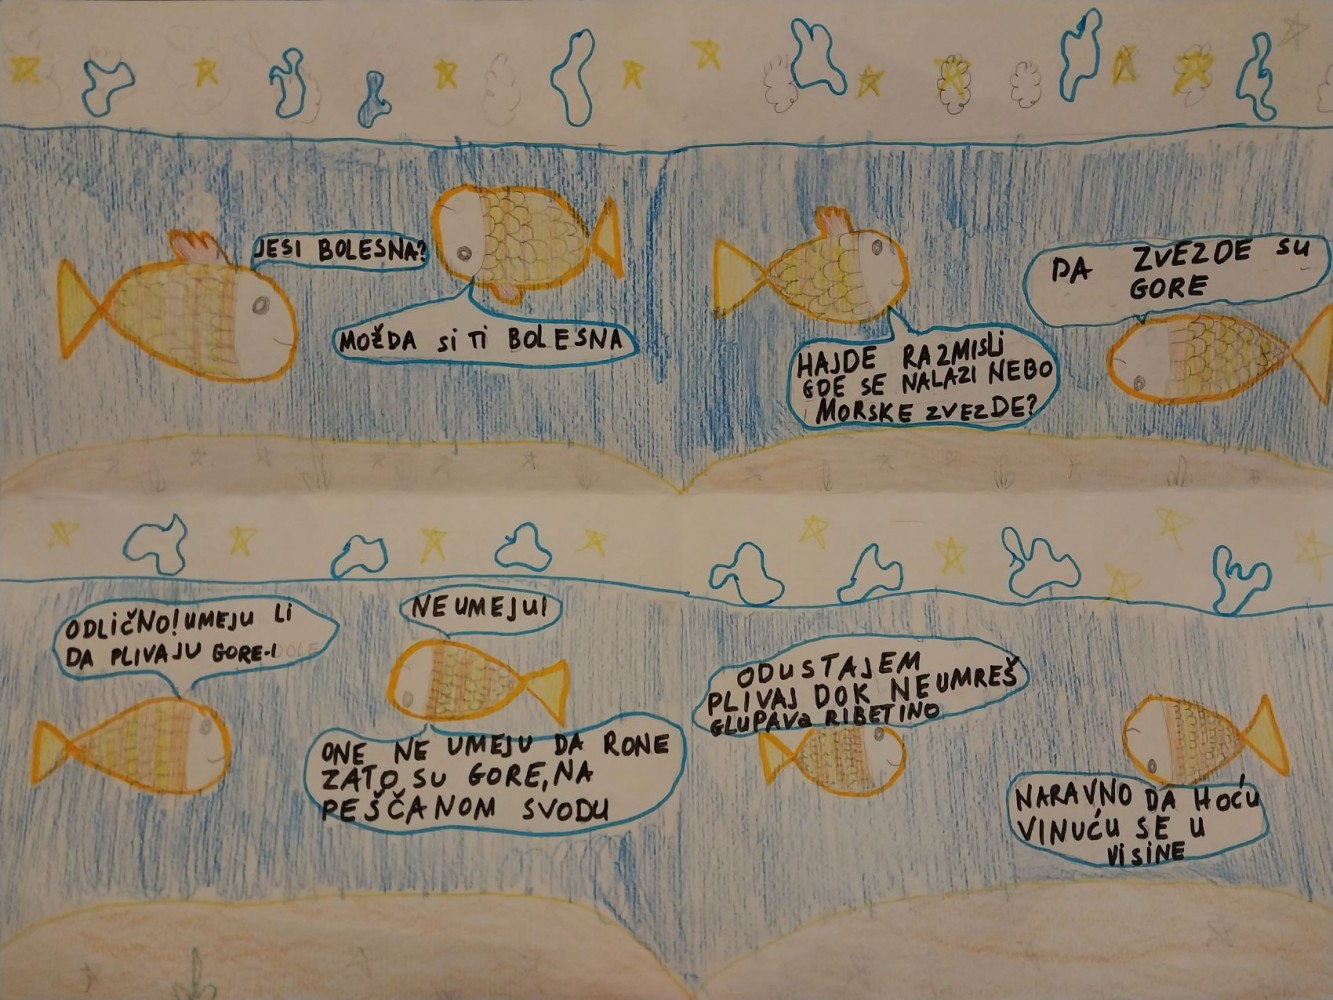 JESI BOLESNA?
MOŽDA Si Ti BOLESNA
HAJDE RAZMISLI
GDE SE NALAZI NEBO
MORSKE ZVEZDE?
DA ZVEZDE SU
GORE
ODLIČNO! UMEJU LI
DA PLIVAJU GORE-I
NE UMEJU!
ONE NE UMEJU DA RONE
ZATO SU GORE, NA
PEŠČANOM SVODU
ODUSTAJEM
PLIVAJ DOK NE UMREŠ
GLUPAVa RIBETINO
NARAVNO DA HOĆU
VINUĆU SE U
ViSiNE